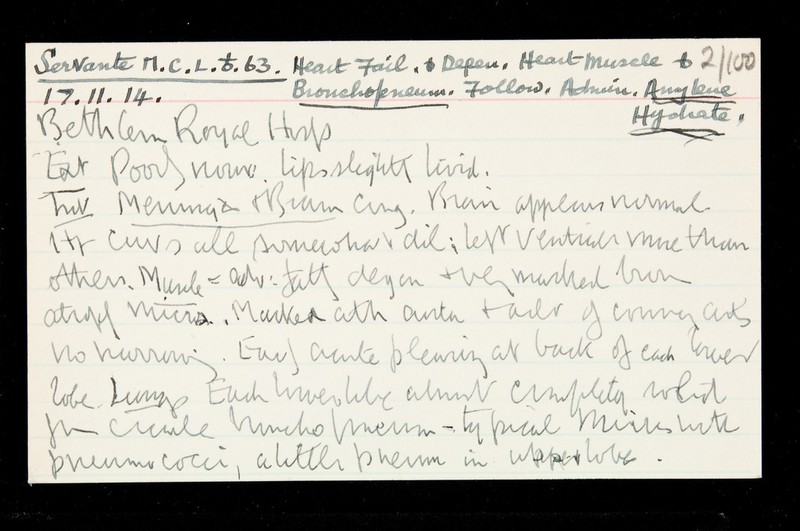 Servante M.C.L. 63. Heart Fail. & Degen. Heart Muscle & 2/100
17.11.14. Bronchopneum. Follow. Admin. Amylene
Hydrate.
Bethlem Royal Hosp
Ext Body norm. lips slightly livid.
Int Meninges & Brain cong. Brain appears normal.
Htr Cavs all somewhat dil; left ventricle more than
others. Muscle = adv: fatty degen & very marked brown
atrophy micro. Marked ath aorta & adv of coronary arts
no narrowing. Early acute pleurisy at back of each lower
lobe. Lungs Each lower lobe almost completely solid
from acute bronchopneum - typical micro with
pneumococci, a little pneum in upper lobe.